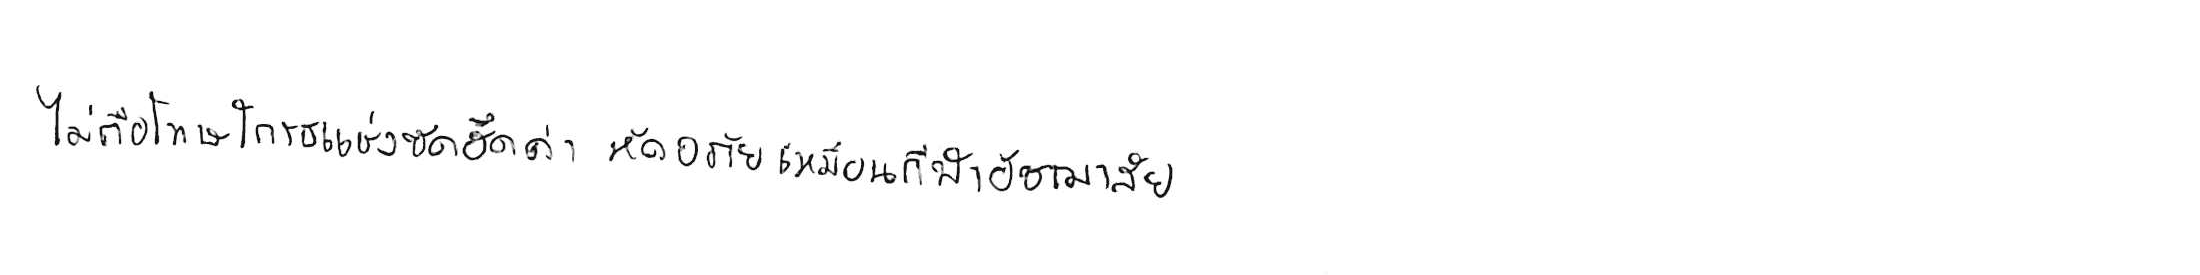 ไม่ถือโทษโกรธแช่งซัดฮึดด่า หัดอภัยเหมือนกีฬาอัชฌาสัย